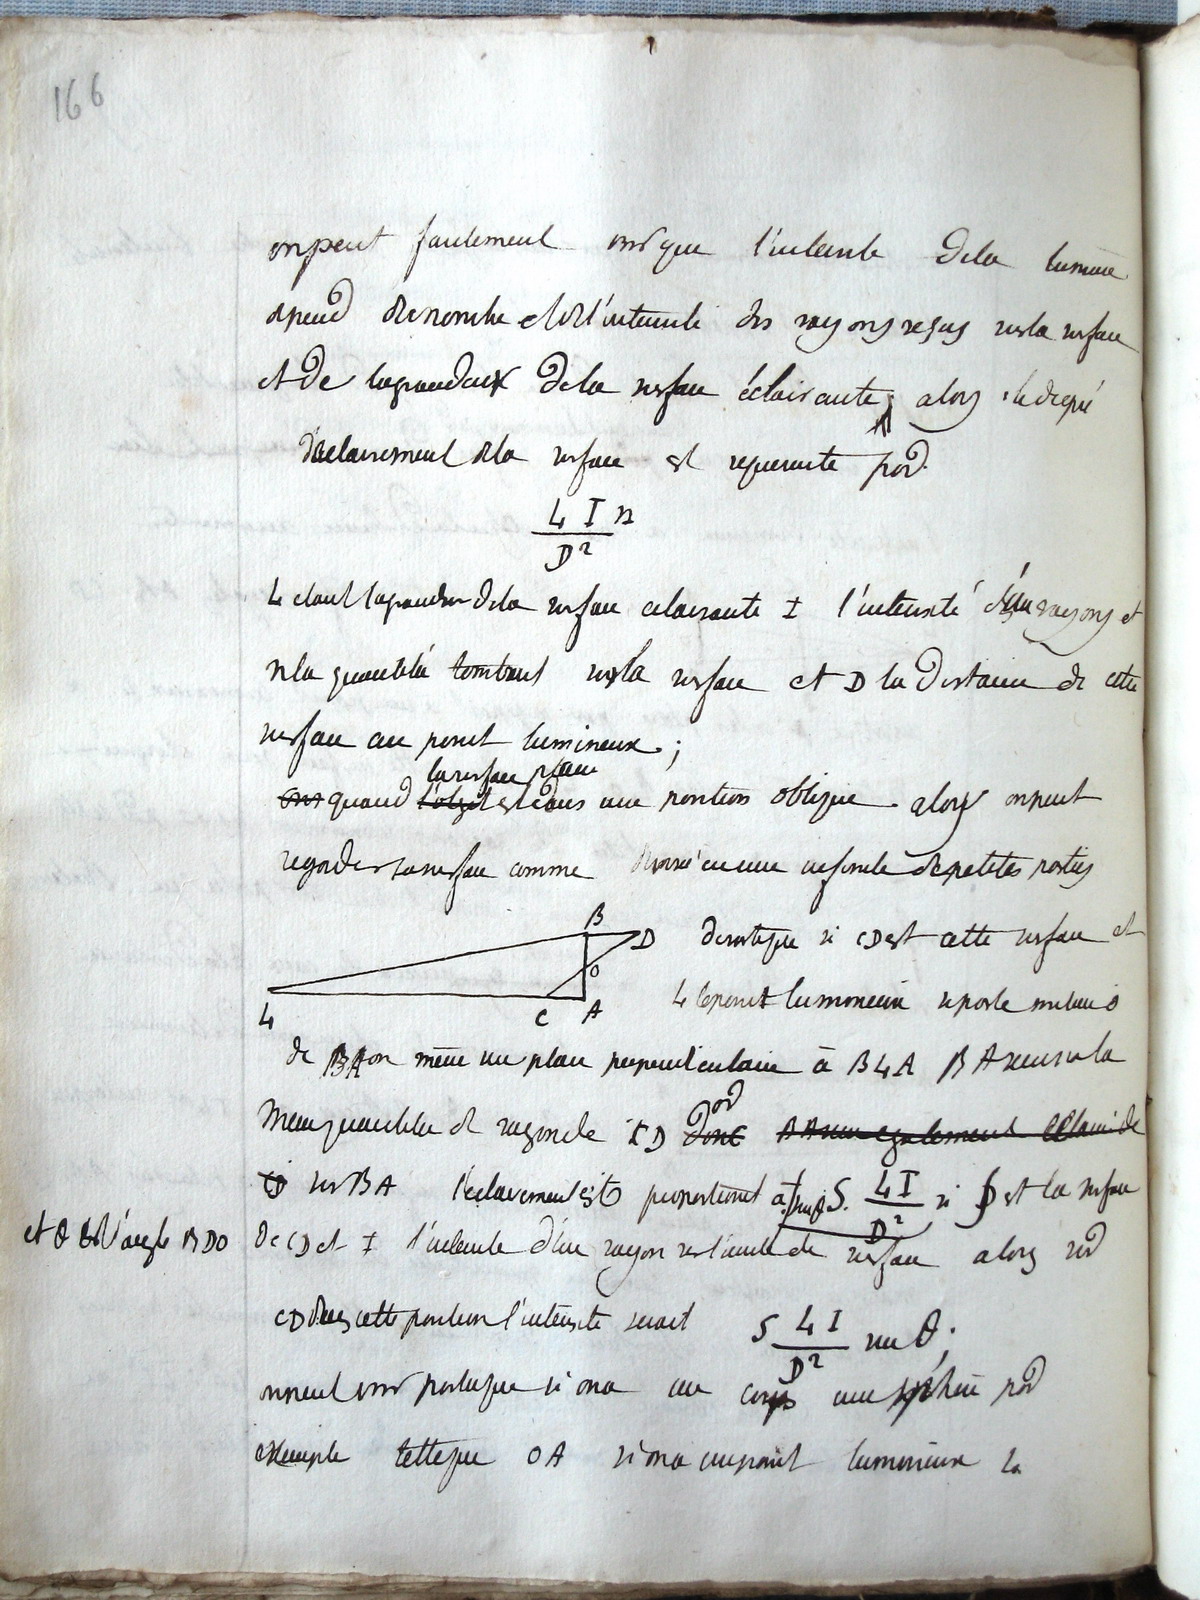 166
on peut facilement voir que l'intensité de la lumiere
depend du nombre et de l'intensité des rayons reçus sur la surface
et de la grandeur de la surface éclairante; alors le degré
d'eclairement de la surface est representé par
L I n
D²
L etant la grandeur de la surface eclairante I l'intensité des rayons et
n la quantité tombant sur la surface et D la distance de cette
surface au point lumineux;
la surface plane
quand l'objet est dans une position oblique alors on peut
regarder sa surface comme divisé en une infinité de petites parties
B
D de sorte que si CD est cette surface et
O
L le point lumineux si par le milieu o
L C A
de BA on mène un plan perpendiculaire à BLA BA recevra la
or
meme quantité de rayon que CD donc BA sera egalement eclairé de
CD sur BA l'éclairement est proportionel à sin θ S. L I si S est la surface
D²
et θ est l'angle BDO de CD et I l'intensité d'un rayon sur l'unité de surface alors sur
CD dans cette position l'intensité serait S L I sin θ;
D²
on peut voir par la que si on a un corps une sphère par
exemple telle que OA si on a un point lumineux L